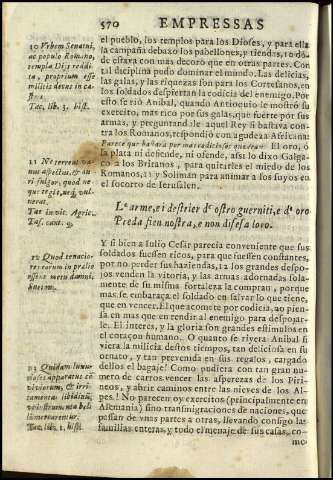 570 EMPRESSAS
el pueblo, los templos para los Dioses, y para ella
la campaña debaxo los pabellones, y tiendas, i o dõ-
de estava con mas decoro que en otras partes. Con
tal diciplina pudo dominar el mundo. Las delicias,
las galas, y las riquezas son para los Cortesanos, en
los soldados despiertan la codicia del enemigo. Por
esto se rió Anibal, quando Antiocuio le mostró su
exercito, mas rico por sus galas, que fuerte por sus
armas, y preguntandole aquel Rey si bastava con-
tra los Romanos, respondió con agudeza Africana:
Parece que bastará por mas codiciosos que sean. El oro, o
la plata ni defiende, ni ofende, assi lo dixo Galga-
co a los Britanos, para quitarles el miedo de los
Romanos, 11 y Solimán para animar a los suyos en
el socorro de Jerusalen.
L' arme, e i destrier d' ostro guerniti, e d' oro
Preda fien nostra, e non difesa loro.
Y si bien a Julio Cesar parecia conveniente que sus
soldados fuessen ricos, para que fuessen constantes,
por no perder sus haziendas, 12 los grandes despo-
jos venden la vitoria, y las armas adornadas sola-
mente de su misma fortaleza la compran, porque
mas se embaraça el soldado en salvar lo que tiene,
que en vencer. El que acomete por codicia, no pien-
sa en mas que en rendir al enemigo para despojar-
le. El interes, y la gloria son grandes estimulos en el
coraçon humano. O quanto se riyera Anibal si
viera la milicia destos tiempos, tan deliciosa en su
ornato, y tan prevenida en sus regalos, cargado
dellos el bagaje! Como pudiera con tan gran nu-
mero de carros vencer las asperezas de los Piri-
neos, y abrir caminos entre las nieves de los Al-
pes! No parecen oy exercitos (principalmente en
Alemania) sino transmigraciones de naciones, que
passan de vnas partes a otras, llevando consigo las
familias enteras, y todo el menaje de sus casas, co-
mo
10 Vrbem Senatui,
ac populo Romano,
templa Dijs reddi-
ta, proprium esse
militis decus in ca-
stris.
Tac. lib. 3. hist.
11 Ne terreat va-
nus aspectus, & au-
ri fulgor, quod ne-
que tegit, neq; vul-
nerat.
Tac. in vit. Agric.
12 Quod tenacio-
res eorum in prælio
essent metu damni.
13 Quidam luxu-
riosos apparatus cõ
viviorum, & irri-
tamenta libidinũ,
ut instrumenta belli
mercarentur.
Tac. lib. 1. hist.